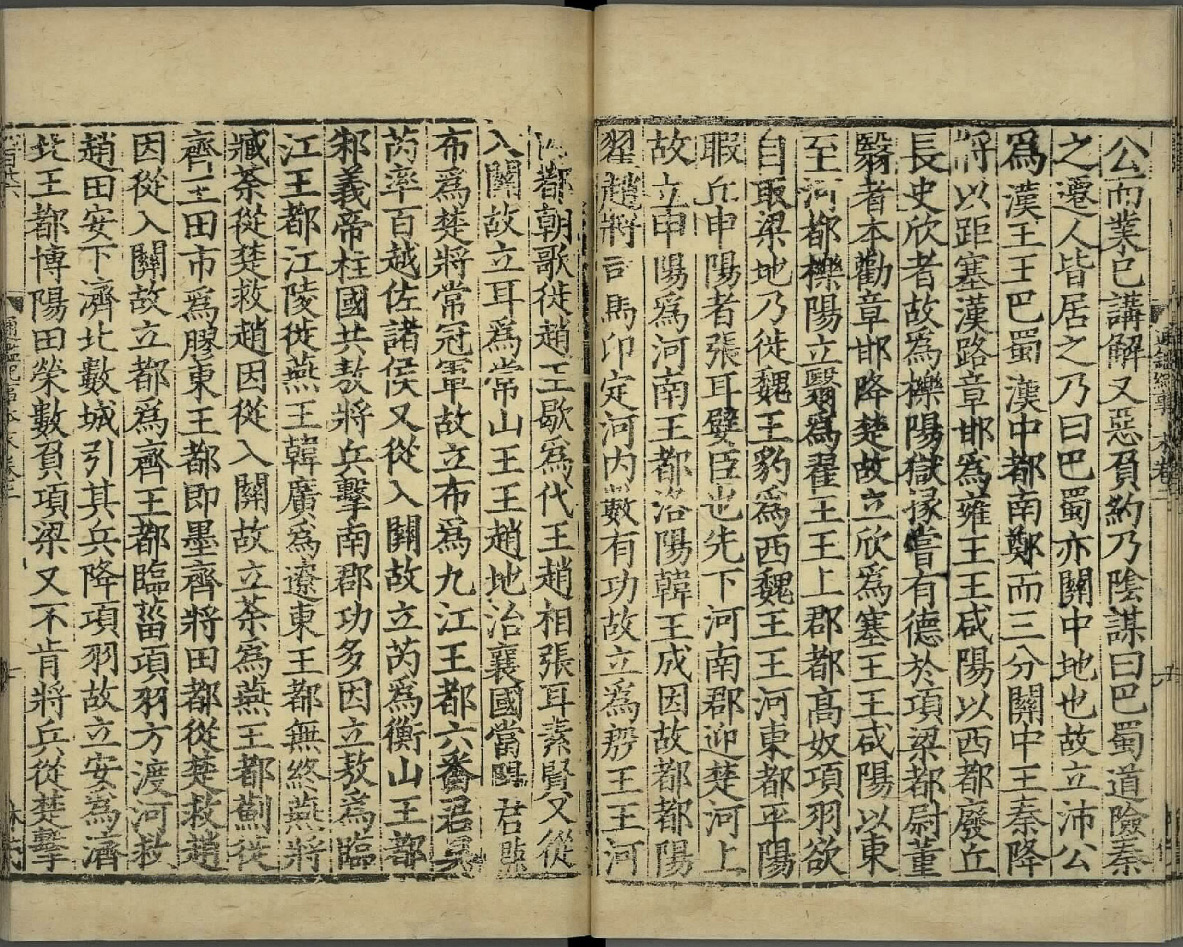 公而業已講解又惡負約乃陰謀曰巴蜀道險秦
之遷人皆居之乃曰巴蜀亦關中地也故立沛公
爲漢王王巴蜀漢中都南鄭而三分關中王秦降
將以距塞漢路章邯爲雍王王咸陽以西都廢丘
長史欣者故爲櫟陽獄掾嘗有德於項梁都尉董
翳者本勸章邯降楚故立欣爲塞王王咸陽以東
至河都櫟陽立翳爲翟王王上郡都高奴項羽欲
自取梁地乃徙魏王豹爲西魏王王河東都平陽
瑕丘申陽者張耳嬖臣也先下河南郡迎楚河上
故立申陽爲河南王都洛陽韓王成因故都都陽
翟趙將司馬卬定河內數有功故立爲殷王王河
內都朝歌徙趙王歇爲代王趙相張耳素賢又從
入關故立耳爲常山王王趙地治襄國當陽君黥
布爲楚將常冠軍故立布爲九江王都六番君吳
芮率百越佐諸侯又從入關故立芮爲衡山王都
邾義帝柱國共敖將兵擊南郡功多因立敖爲臨
江王都江陵徙燕王韓廣爲遼東王都無終燕將
臧荼從楚救趙因從入關故立荼爲燕王都薊徙
齊王田市爲膠東王都即墨齊將田都從楚救趙
因從入關故立都爲齊王都臨菑項羽方渡河救
趙田安下濟北數城引其兵降項羽故立安爲濟
北王都博陽田榮數負項梁又不肯將兵從楚擊